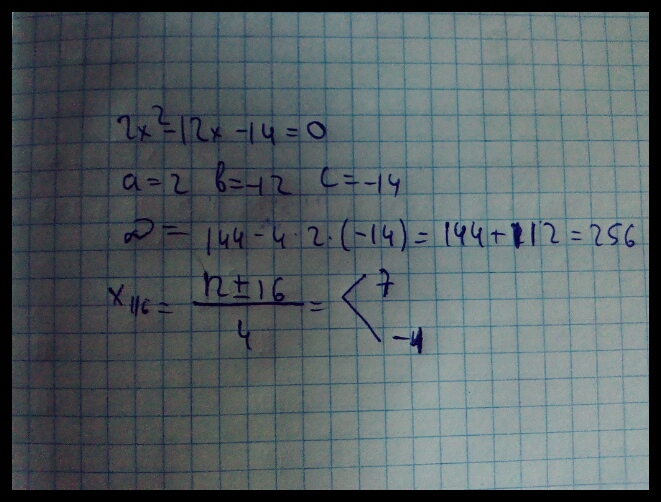 2x²-12x-14=0
a=2 b=-12 c=-14
D= 144-4·2·(-14)=144+112=256
x₁/₆= 12±16/4 = < 7 -1